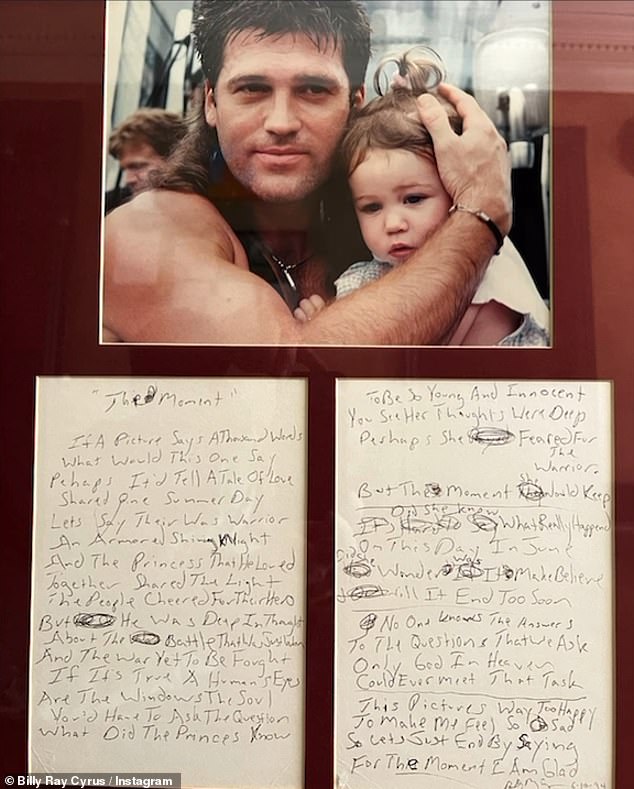 "The Moment"
If A Picture Says A Thousand Words
What Would This One Say
Pehaps It'd Tell A Tale Of Love
Shared One Summer Day
Lets Say Their Was Warrior
An Armored Shining Knight
And The Princess That He Loved
Together Shared The Light
The People Cheered For Their Hero
But He Was Deep In Thought
About The Battle That Was Just Won
And The War Yet To Be Fought
If It's True A Human's Eyes
Are The Windows The Soul
You'd Have To Ask The Question
What Did The Princes Know
To Be So Young And Innocent
You See Her Thoughts Were Deep
Perhaps She Feared For
The
Warrior
But The Moment She Would Keep
Did She Know
What Really Happend
On This Day In June
Did
was
Wonder It Make Believe
Will It End Too Soon
No One Knows The Answers
To The Questions That We Ask
Only God In Heaven
Could Ever Meet That Task
This Pictures Way Too Happy
To Make Me Feel So Sad
So Lets Just End By Saying
For The Moment I Am Glad
6-10-94
© Billy Ray Cyrus / Instagram